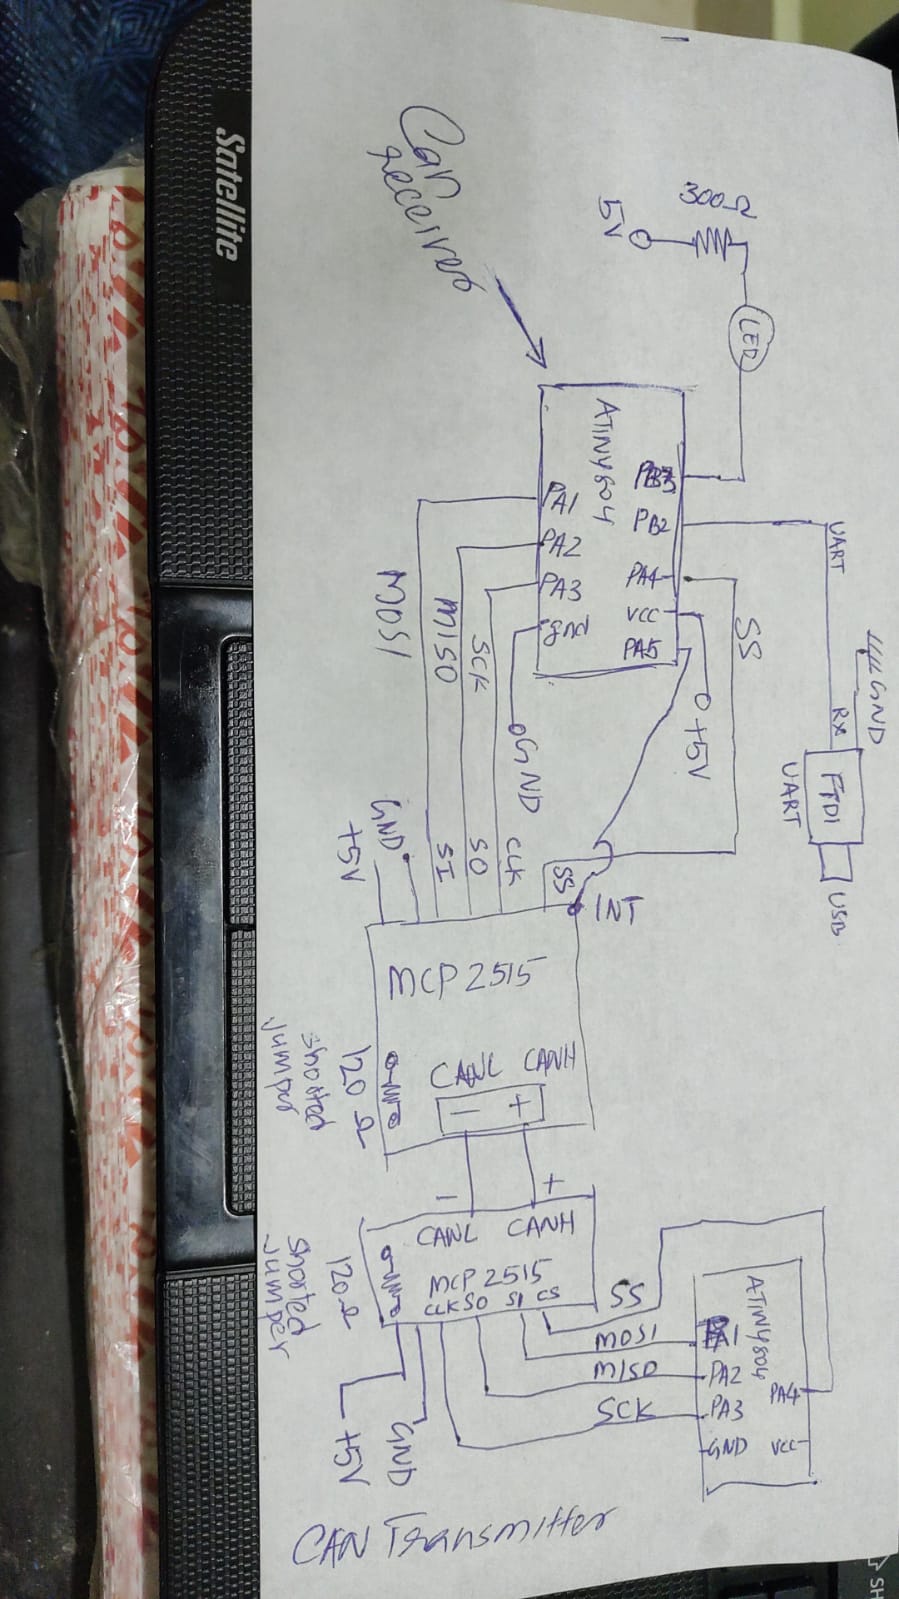 Satellite
Can
receiver
5V
300Ω
LED
ATiny804
PB3
PB2
PA4
VCC
PA5
PA1
PA2
PA3
gnd
UART
GND
RX
FTDI
UART
USB
SS
+5V
GND
MOSI
MISO
SCK
GND
+5V
SI
SO
CLK
SS
INT
MCP2515
CANL CANH
- +
120Ω
Shorted
Jumper
- +
CANL CANH
MCP2515
CLK SO SI CS
120Ω
Shorted
Jumper
+5V
GND
SS
MOSI
MISO
SCK
ATiny804
PA1
PA2
PA3
GND
PA4
VCC
CAN Transmitter
SH